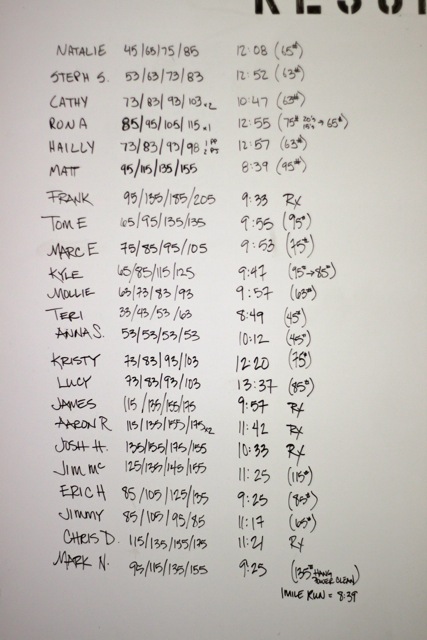 NATALIE 45/65/75/85 12:08 (65#)
STEPH S. 53/63/73/83 12:52 (63#)
CATHY 73/83/93/103 x2 10:47 (63#)
RON A 85/95/105/115 x1 12:55 (75# → 65#)
HAILLY 73/83/93/98 12:57 (63#)
MATT 95/115/135/155 8:39 (95#)
FRANK 95/135/185/205 9:33 RX
TOM E 65/95/135/135 9:55 (95#)
MARC E 75/85/95/105 9:53 (75#)
KYLE 65/85/115/125 9:47 (95#→85#)
MOLLIE 63/73/83/93 9:57 (63#)
TERI 33/43/53/63 8:49 (45#)
ANNA S. 53/53/53/53 10:12 (45#)
KRISTY 73/83/93/103 12:20 (75#)
LUCY 73/83/93/103 13:37 (85#)
JAMES 115/135/155/175 9:57 RX
AARON R 115/135/155/175 x2 11:42 RX
JOSH H. 135/155/175/155 10:33 RX
JIM MC 125/135/145/155 11:25 (115#)
ERIC H 85/105/125/135 9:25 (85#)
JIMMY 85/105/95/85 11:17 (65#)
CHRIS D. 115/135/155/175 11:21 RX
MARK N. 95/115/135/155 9:25 (135# HANG
POWER CLEAN)
1 MILE RUN = 8:39